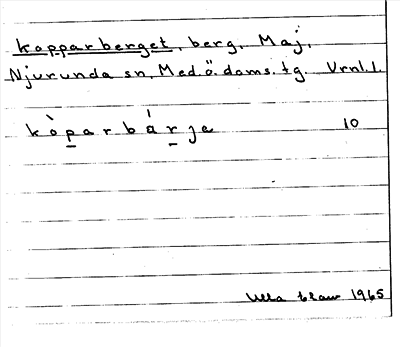 kopparberget, berg, Maj.
Njurunda sn, Med.ö.doms.tg. Vrnl.1.
kòparbárje 10
Ulla 1965